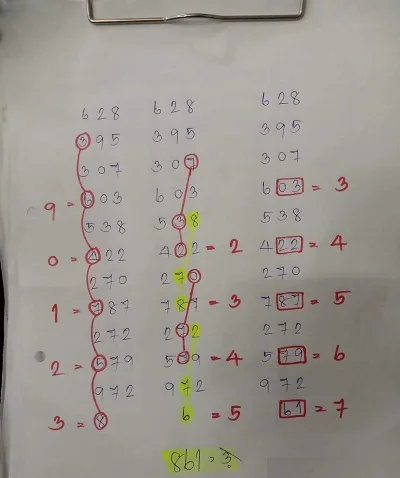 628 628 628
395 395 395
307 307 307
9 = 603 603 603 = 3
538 538 538
0 = 422 422 = 2 422 = 4
270 270 270
1 = 787 787 = 3 787 = 5
272 272 272
2 = 579 579 = 4 579 = 6
972 972 972
3 = 8 6 = 5 61 = 7
861 = 3